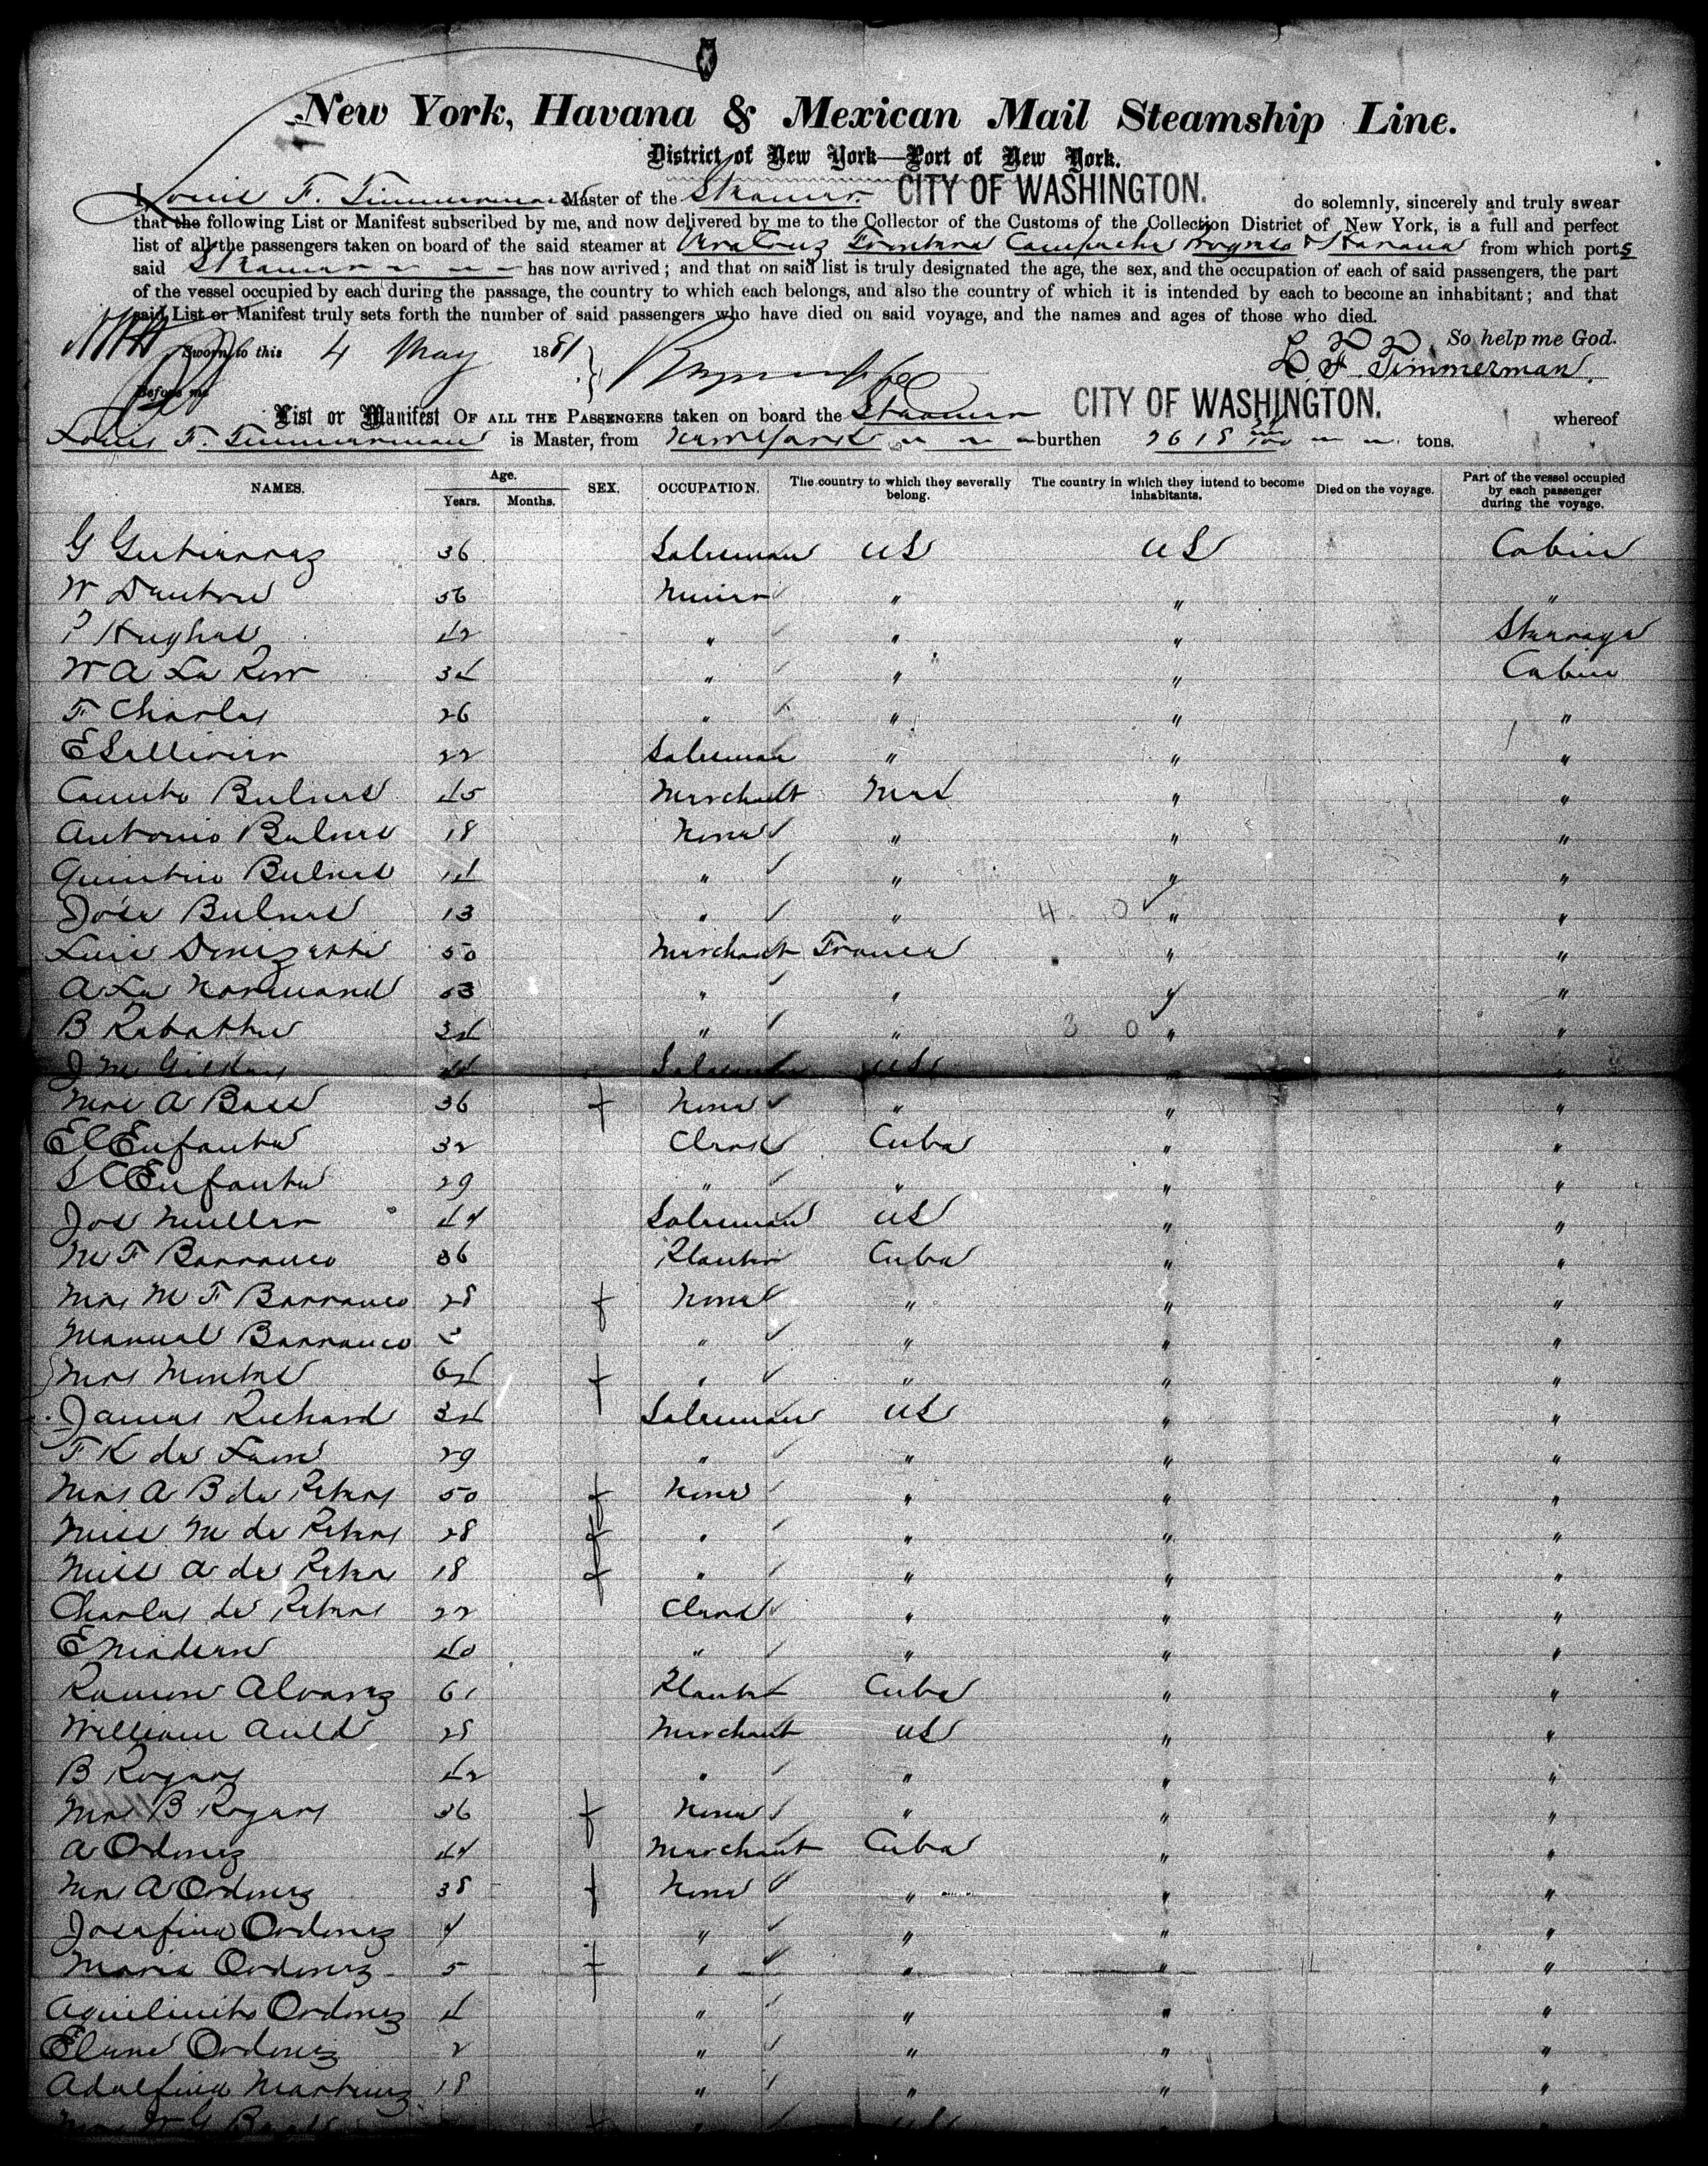 New York, Havana & Mexican Mail Steamship Line.
District of New York—Port of New York.
I, Louis F. Timmerman Master of the Steamer CITY OF WASHINGTON. do solemnly, sincerely and truly swear
that the following List or Manifest subscribed by me, and now delivered by me to the Collector of the Customs of the Collection District of New York, is a full and perfect
list of all the passengers taken on board of the said steamer at Vera Cruz Frontera Campeche Progreso & Havana from which ports
said Steamer " " " has now arrived; and that on said list is truly designated the age, the sex, and the occupation of each of said passengers, the part
of the vessel occupied by each during the passage, the country to which each belongs, and also the country of which it is intended by each to become an inhabitant; and that
said List or Manifest truly sets forth the number of said passengers who have died on said voyage, and the names and ages of those who died.
So help me God.
Sworn to this 4 May 1881
L. F. Timmerman.
Before me
List or Manifest OF ALL THE PASSENGERS taken on board the Steamer CITY OF WASHINGTON. whereof
Louis F. Timmerman is Master, from New York " " " burthen 2618 tons.
NAMES. Age. Years. Months. SEX. OCCUPATION. The country to which they severally belong. The country in which they intend to become inhabitants. Died on the voyage. Part of the vessel occupied by each passenger during the voyage.
G Gutierrez 36 Salesman US US Cabin
W 56 Miner " " "
P Hughes 42 " " " Steerage
W A La Row 34 " " " Cabin
F Charles 26 " " " "
E 22 Salesman " " "
Bulnes 45 Merchant Mex " "
Antonio Bulnes 18 None " " "
Quintin Bulnes 14 " " " "
José Bulnes 13 " " " " 4 0
Luis 50 Merchant France " "
A Le Normand 53 " " " "
B 34 " " " " 3 0
J M Salesman US " "
Mrs A Bass 36 f None " " "
E C Enfante 32 Clerk Cuba " "
S C Enfante 29 " " " "
Jos Muller 44 Salesman US " "
M F Barranco 36 Planter Cuba " "
Mrs M F Barranco 28 f None " " "
Manuel Barranco 3 " " " "
Mrs Montes 64 f " " " "
James Richard 34 Salesman US " "
F K de 29 " " " "
Mrs A B de 50 f None " " "
Miss M de 28 f " " " "
Miss A de 18 f " " " "
Charles de 22 Clerk " " "
E 40 " " " "
Ramon Alvarez 61 Planter Cuba " "
William Auld 28 Merchant US " "
B Rogers 42 " " " "
Mrs B Rogers 36 f None " " "
A Ordonez 44 Merchant Cuba " "
Mrs A Ordonez 38 f None " " "
Josefina Ordonez 7 " " " "
Maria Ordonez 5 f " " " "
Aquilinito Ordonez 4 " " " "
Ordonez 2 " " " "
Adolfina Martinez 18 " " " "
Mrs W G f " US " "